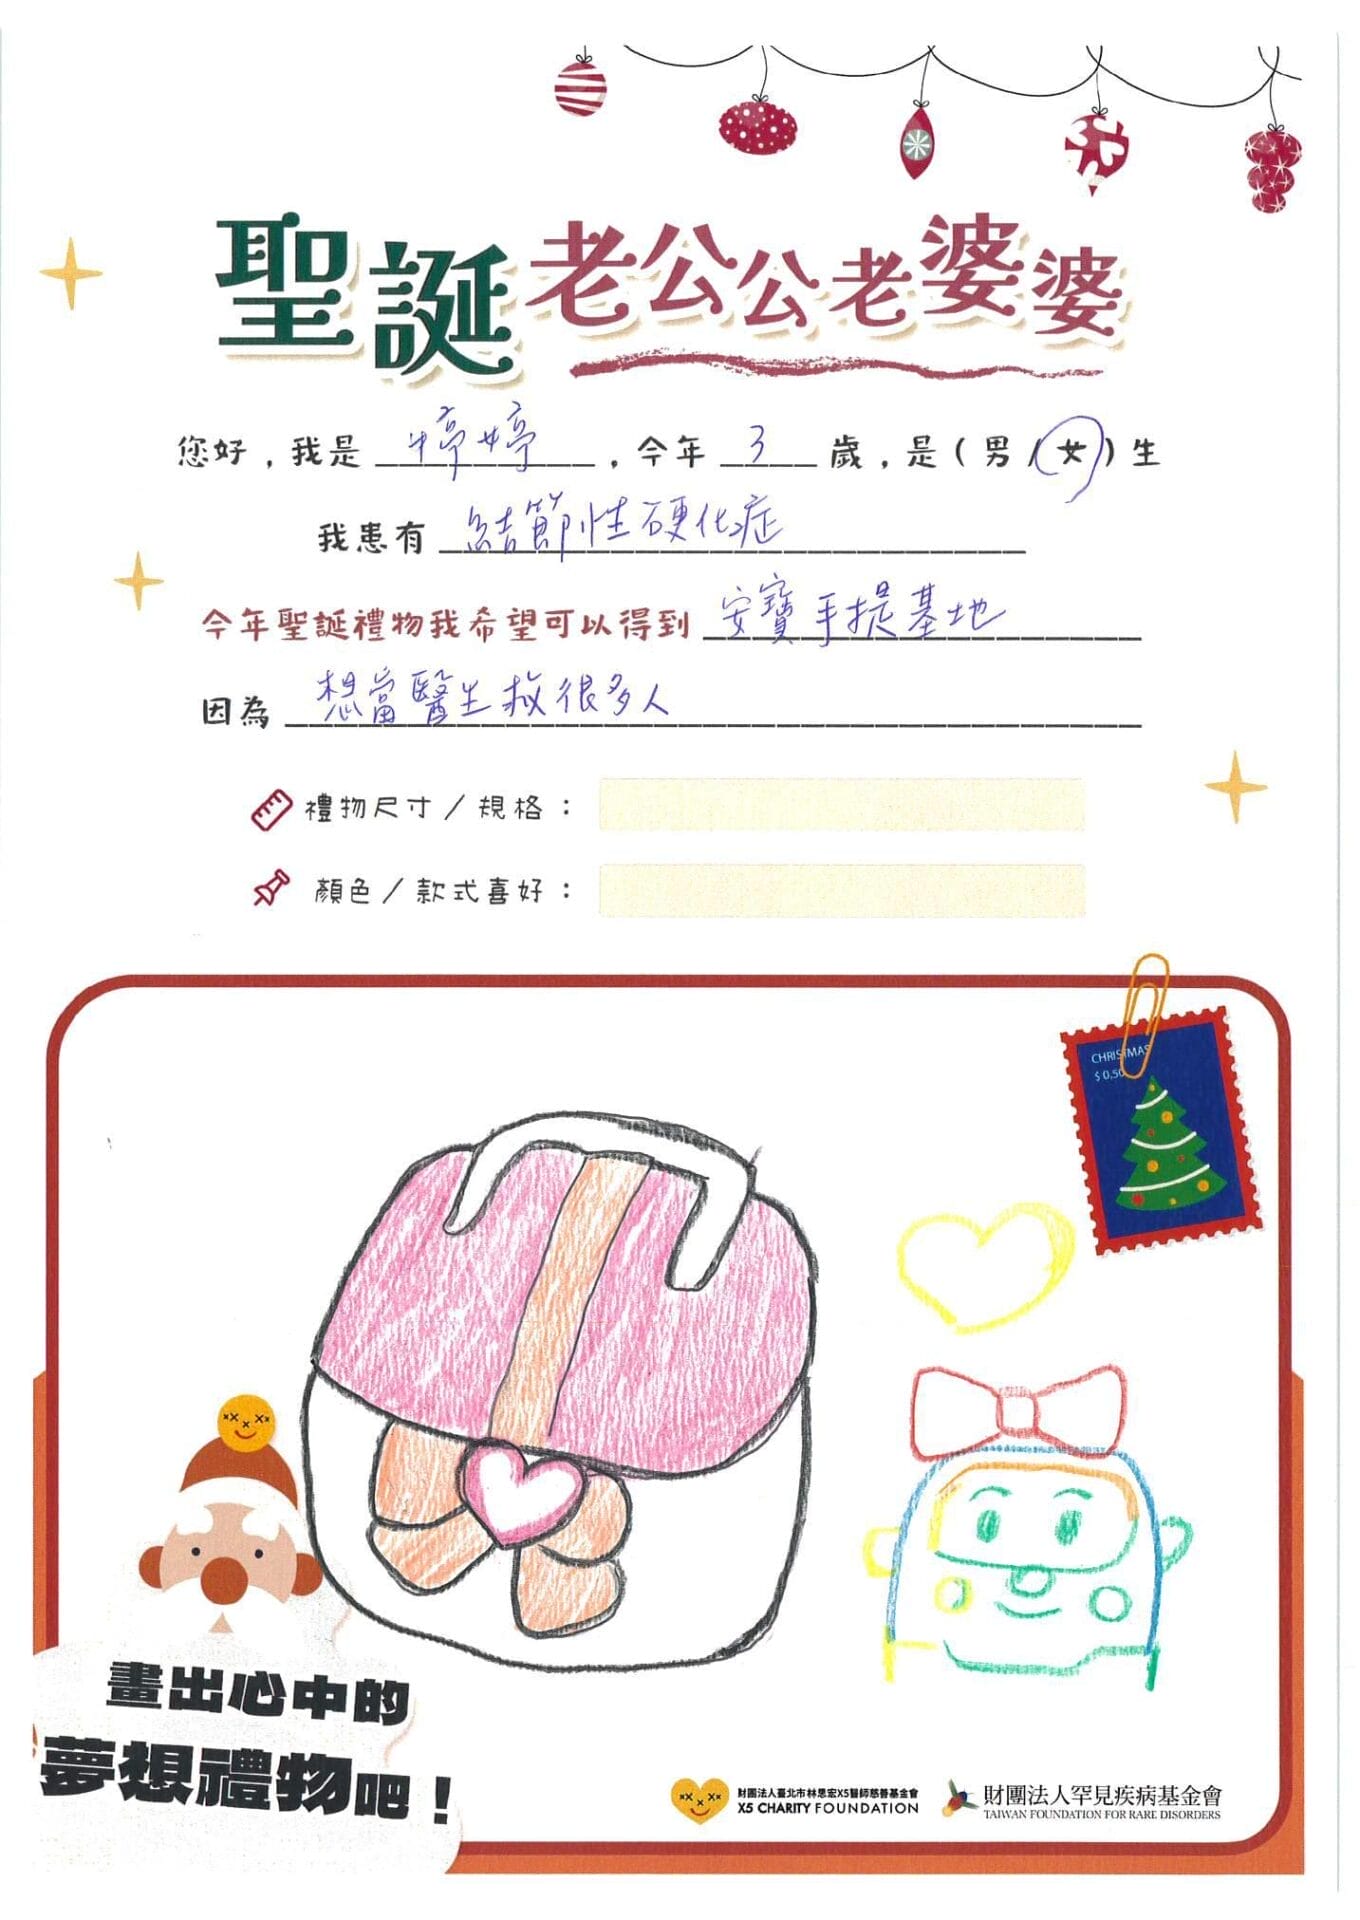 聖誕老公公老婆婆
您好，我是 婷婷，今年 3 歲，是（男/女）生
我患有 結節性硬化症
今年聖誕禮物我希望可以得到 安寶手提基地
因為 想當醫生救很多人
禮物尺寸／規格：
顏色／款式喜好：
CHRISTMAS
$ 0,50
畫出心中的
夢想禮物吧！
財團法人臺北市林思宏X5醫師慈善基金會
X5 CHARITY FOUNDATION
財團法人罕見疾病基金會
TAIWAN FOUNDATION FOR RARE DISORDERS